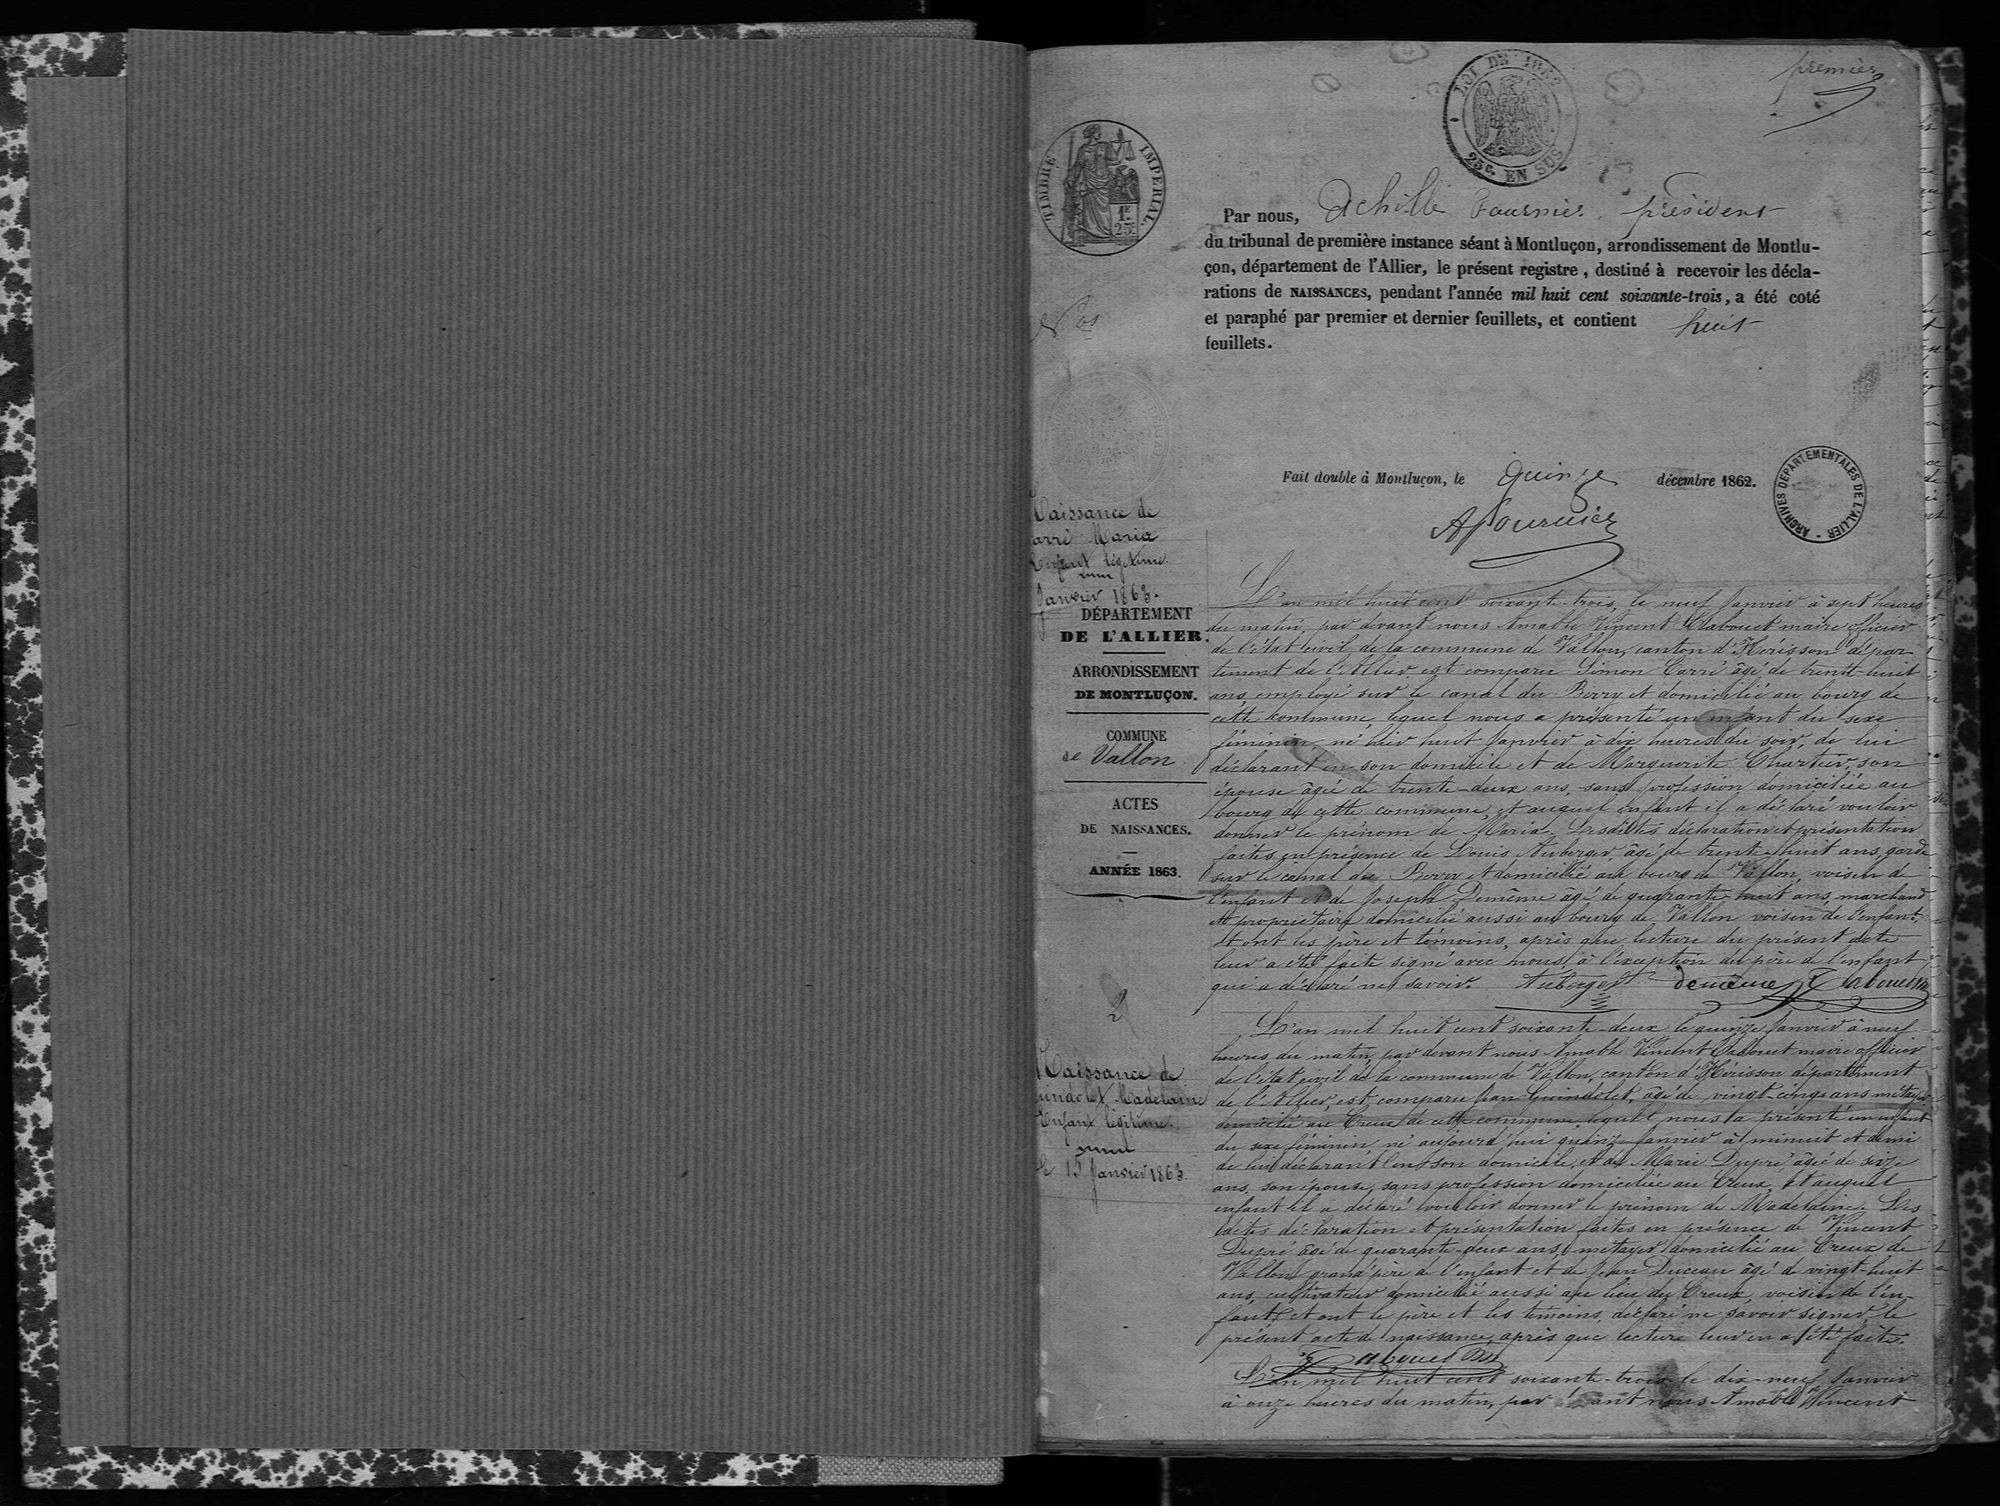 premier
LOI DE 1862
25c. EN SUS
TIMBRE IMPERIAL
1F. 25c.
Par nous, Achille Fournier, président
du tribunal de première instance séant à Montluçon, arrondissement de Montlu-
çon, département de l'Allier, le présent registre, destiné à recevoir les décla-
rations de NAISSANCES, pendant l'année mil huit cent soixante-trois, a été coté
et paraphé par premier et dernier feuillets, et contient huit
feuillets.
Fait double à Montluçon, le quinze décembre 1862.
AFournier
ARCHIVES DÉPARTEMENTALES DE L'ALLIER
Naissance de
arré Maria
Enfant légitime
Janvier 1863.
DÉPARTEMENT
DE L'ALLIER.
ARRONDISSEMENT
DE MONTLUÇON.
COMMUNE
de Vallon
ACTES
DE NAISSANCES.
ANNÉE 1863.
L'an mil huit cent soixante-trois, le neuf Janvier à sept heures
du matin, par devant nous Amable Vincent Tabouet maire officier
de l'état civil de la commune de Vallon, canton d'Hérisson dépar-
tement de l'Allier, est comparu Simon Carré âgé de trente-huit
ans, employé sur le canal du Berry et domicilié au bourg de
cette commune, lequel nous a présenté un enfant du sexe
féminin, né hier huit Janvier à dix heures du soir, de lui
déclarant en son domicile et de Marguerite Chartier, son
épouse âgée de trente-deux ans, sans profession domiciliée au
bourg de cette commune, et auquel enfant il a déclaré vouloir
donner le prénom de Maria. Lesdites déclaration et présentation
faites en présence de Louis Auberger, âgé de trente-huit ans, garde
sur le canal du Berry et domicilié au bourg de Vallon, voisin de
l'enfant et de Joseph Demême âgé de quarante-huit ans, marchand
et propriétaire domicilié aussi au bourg de Vallon voisin de l'enfant.
Et ont les père et témoins, après que lecture du présent acte
leur a été faite signé avec nous, à l'exception du père de l'enfant
qui a déclaré ne savoir. Auberger demême Tabouet
2
Naissance de
uindolet Madelaine
Enfant légitime.
le 15 Janvier 1863
L'an mil huit cent soixante-deux le quinze Janvier à neuf
heures du matin, par devant nous Amable Vincent Tabouet maire officier
de l'état civil de la commune de Vallon, canton d'Hérisson département
de l'Allier, est comparu Jean Guindolet, âgé de vingt-cinq ans métayer
domicilié au Creux de cette commune, lequel nous a présenté un enfant
du sexe féminin, né aujourd'hui quinze Janvier à minuit et demi
de lui déclarant en son domicile, et de Marie Dupré âgée de seize
ans, son épouse, sans profession domiciliée au Creux, et auquel
enfant il a déclaré vouloir donner le prénom de Madelaine. Les
dites déclaration et présentation faites en présence de Vincent
Dupré âgé de quarante-deux ans, métayer domicilié au Creux de
Vallon, grand'père de l'enfant et de Jean Duceau âgé de vingt-huit
ans, cultivateur domicilié aussi au lieu du Creux, voisin de l'en-
fant, et ont le père et les témoins, déclaré ne savoir signer le
présent acte de naissance, après que lecture leur en a été faite.
Tabouet
L'an mil huit cent soixante-trois le dix-neuf Janvier
à onze heures du matin, par devant nous Amable Vincent